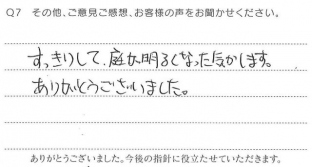 Q7 その他、ご意見ご感想、お客様の声をお聞かせください。
すっきりして、庭が明るくなった気がします。
ありがとうございました。
ありがとうございました。今後の指針に役立たせていただきます。